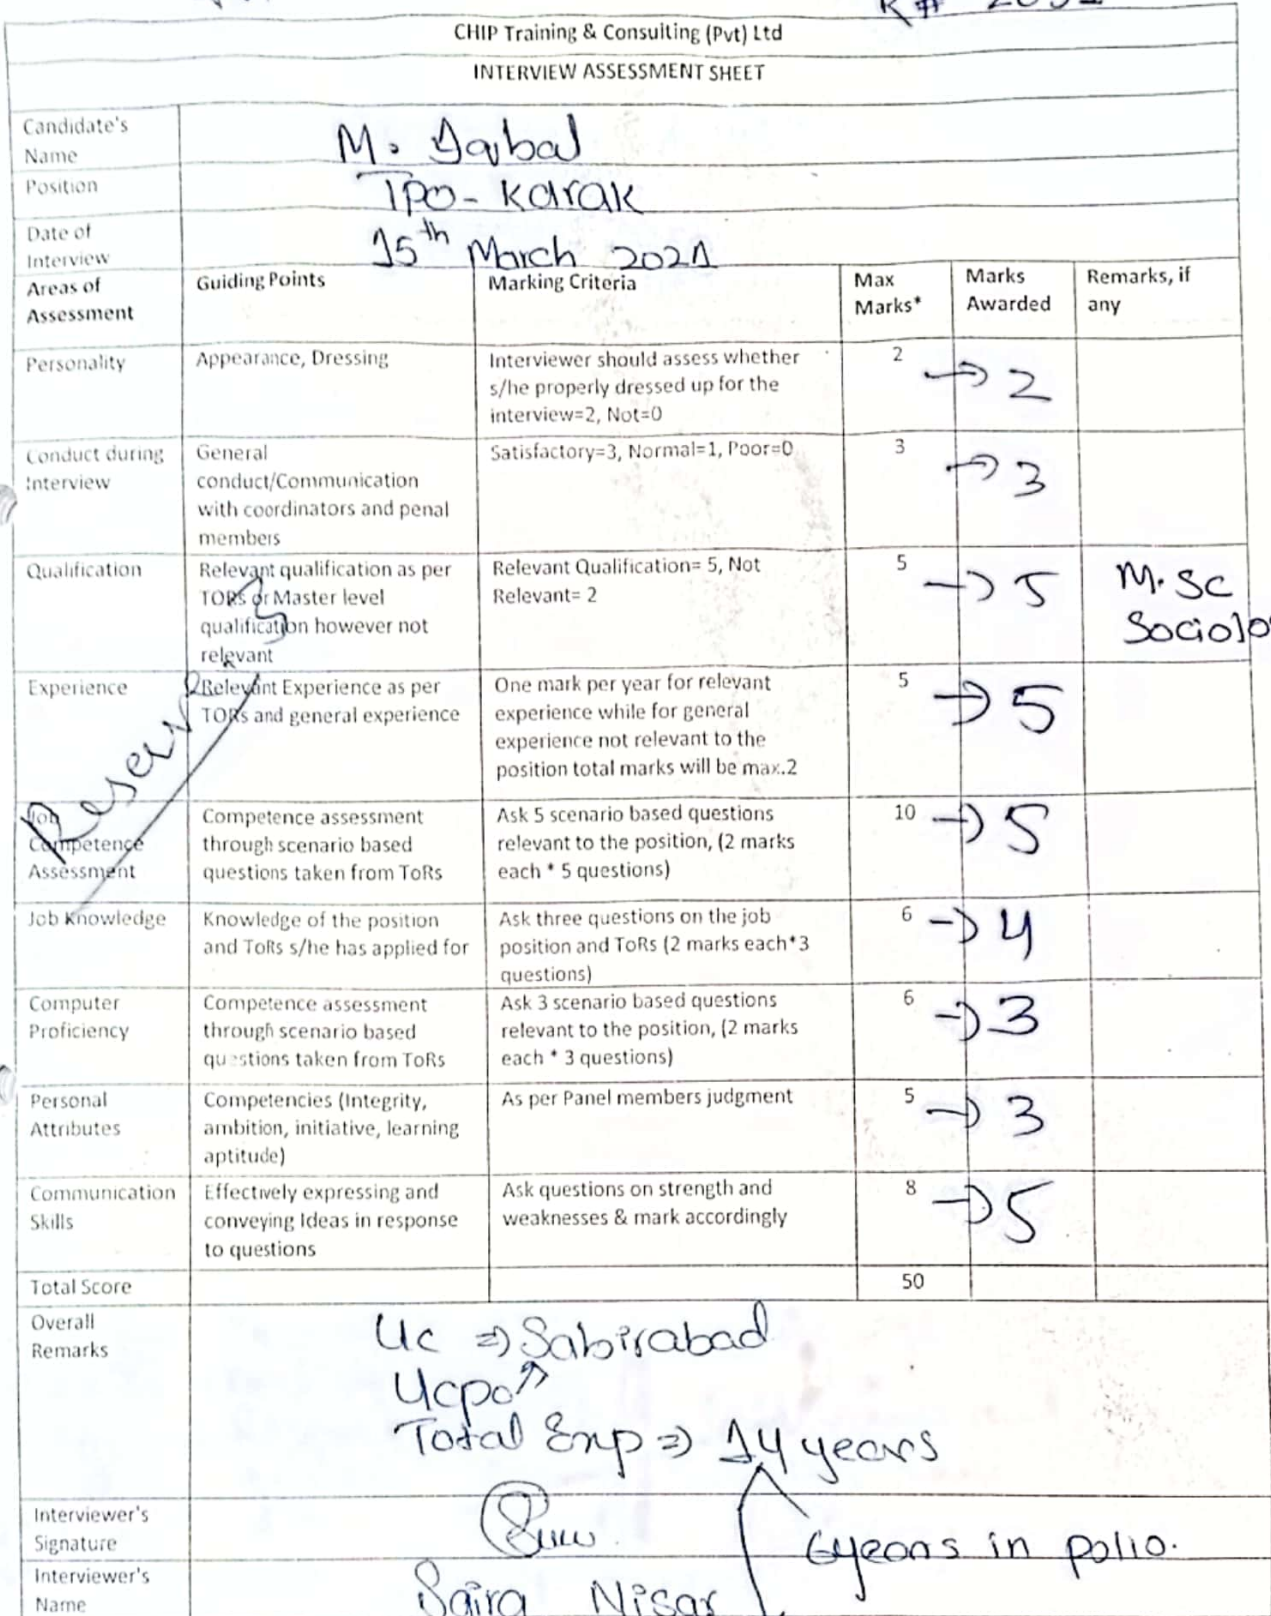 CHIP Training & Consulting (Pvt) Ltd
INTERVIEW ASSESSMENT SHEET
Candidate's
Name
M. Iqbal
Position
TPO - Karak
Date of
Interview
15th March 2021
Areas of
Assessment
Guiding Points
Marking Criteria
Max
Marks*
Marks
Awarded
Remarks, if
any
Personality
Appearance, Dressing
Interviewer should assess whether
s/he properly dressed up for the
interview=2, Not=0
2
→ 2
Conduct during
Interview
General
conduct/Communication
with coordinators and penal
members
Satisfactory=3, Normal=1, Poor=0
3
→ 3
Qualification
Relevant qualification as per
TORs or Master level
qualification however not
relevant
Relevant Qualification= 5, Not
Relevant= 2
5
→ 5
M.SC
Sociolo
Experience
Relevant Experience as per
TORs and general experience
One mark per year for relevant
experience while for general
experience not relevant to the
position total marks will be max.2
5
→ 5
Job
Competence
Assessment
Competence assessment
through scenario based
questions taken from ToRs
Ask 5 scenario based questions
relevant to the position, (2 marks
each * 5 questions)
10
→ 5
Job Knowledge
Knowledge of the position
and ToRs s/he has applied for
Ask three questions on the job
position and ToRs (2 marks each*3
questions)
6
→ 4
Computer
Proficiency
Competence assessment
through scenario based
questions taken from ToRs
Ask 3 scenario based questions
relevant to the position, (2 marks
each * 3 questions)
6
→ 3
Personal
Attributes
Competencies (Integrity,
ambition, initiative, learning
aptitude)
As per Panel members judgment
5
→ 3
Communication
Skills
Effectively expressing and
conveying Ideas in response
to questions
Ask questions on strength and
weaknesses & mark accordingly
8
→ 5
Total Score
50
Overall
Remarks
UC ⇒ Sabirabad
Ucpo ↗
Total Exp ⇒ 14 years
6years in polio.
Interviewer's
Signature
Interviewer's
Name
Saira Nisar